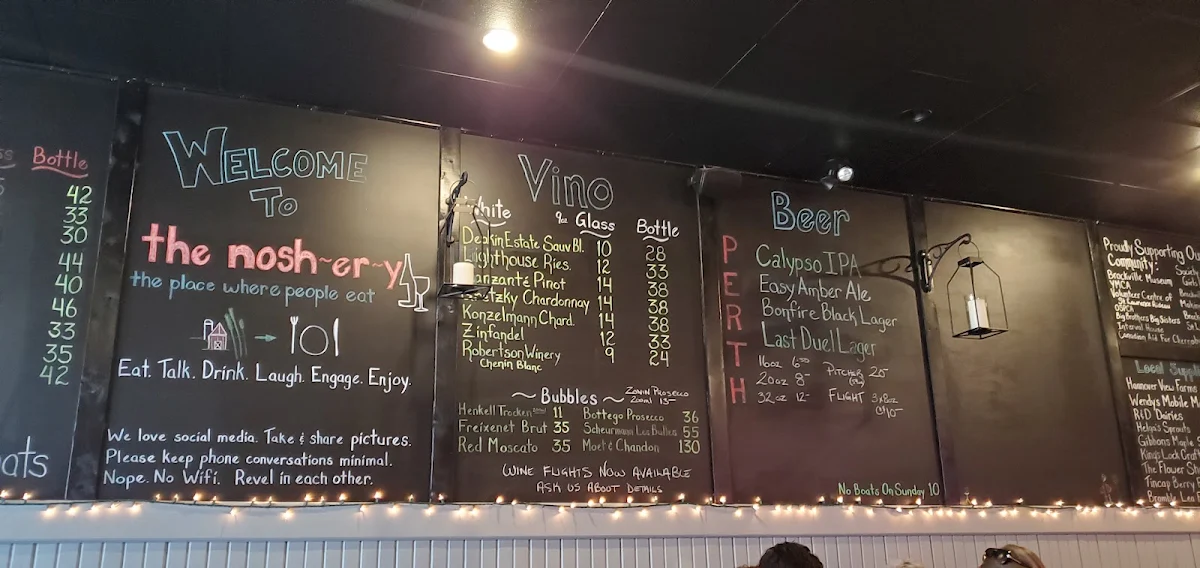 Bottle
42
33
30
44
40
46
33
35
42
ats
WELCOME
To
the nosh~er~y
the place where people eat
Eat. Talk. Drink. Laugh. Engage. Enjoy.
We love social media. Take & share pictures.
Please keep phone conversations minimal.
Nope. No Wifi. Revel in each other.
Vino
White 9oz Glass Bottle
Deakin Estate Sauv Bl. 10 28
Lighthouse Ries. 12 33
Pinot 14 38
Chardonnay 14 38
Konzelmann Chard. 14 38
Zinfandel 12 33
Robertson Winery 9 24
Chenin Blanc
~ Bubbles ~ Zonin Prosecco
200ml 13-
Henkell Trocken 11 Bottego Prosecco 36
Freixenet Brut 35 Scheurmann Les Bulles 55
Red Moscato 35 Moet & Chandon 130
WINE FLIGHTS NOW AVAILABLE
ASK US ABOUT DETAILS
Beer
PERTH
Calypso IPA
Easy Amber Ale
Bonfire Black Lager
Last Duel Lager
16oz 6.50 PITCHER 20-
20oz 8-
32oz 12- FLIGHT
10-
No Boats On Sunday 10
Proudly Supporting Our
Community:
Brockville Museum
YMCA
Volunteer Centre of
OSPCA
Big Brothers Big Sisters
Interval House
Canadian Aid for
Local
Hannover View Farms
Wendy's Mobile
R&D Dairies
Helga's Sprouts
Gibbons Maple
Kings Lock
The Flower
Tincap Berry
Bramble